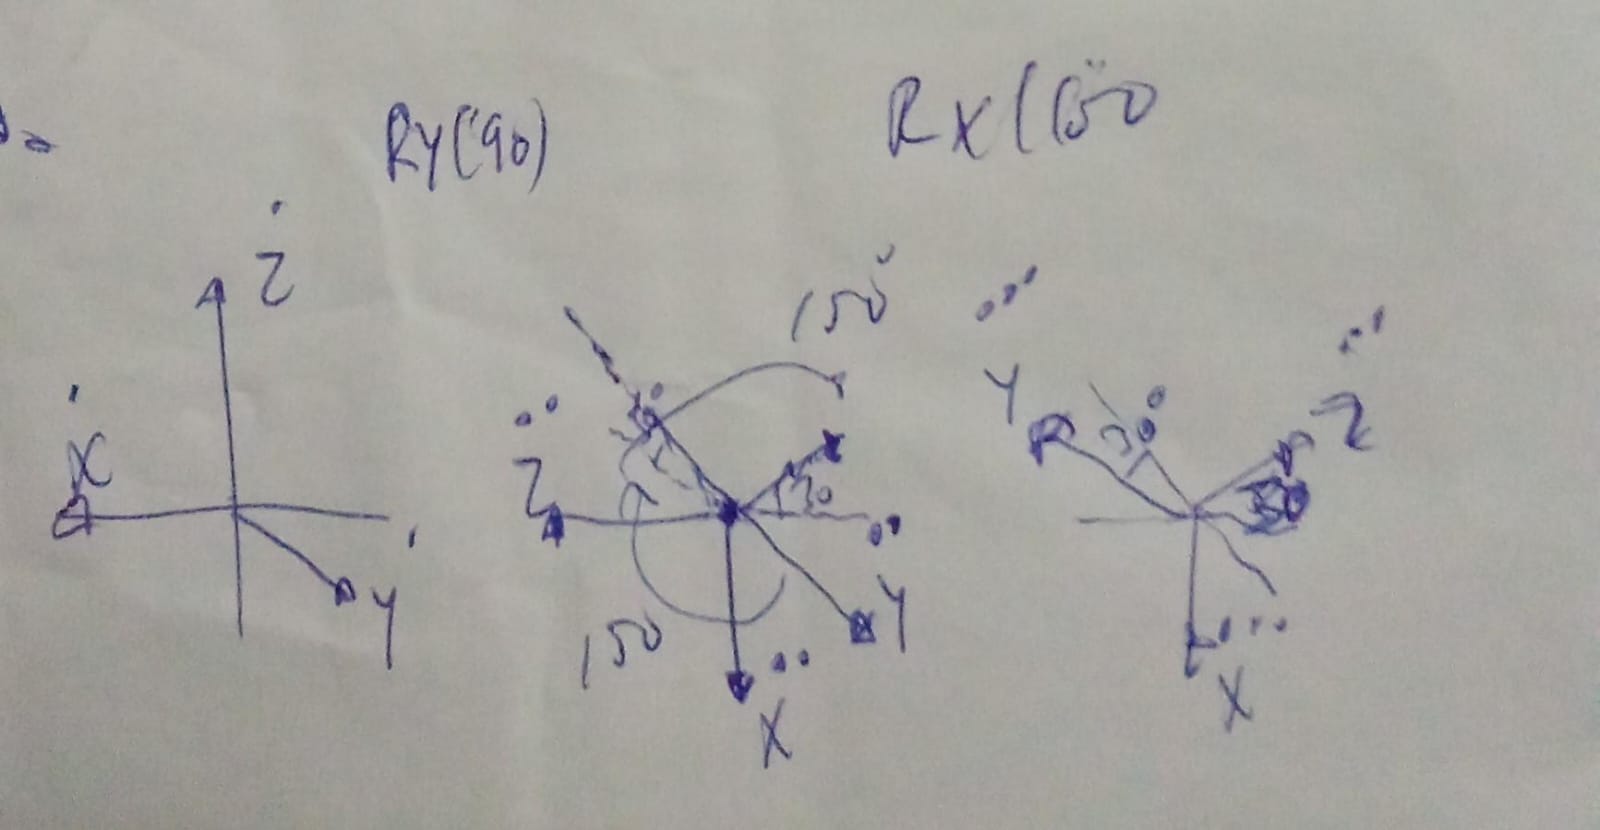 RY(90)
RX(150
Z
X
Y
150
Z
30
30
Y
150
X
Y
30
Z
X